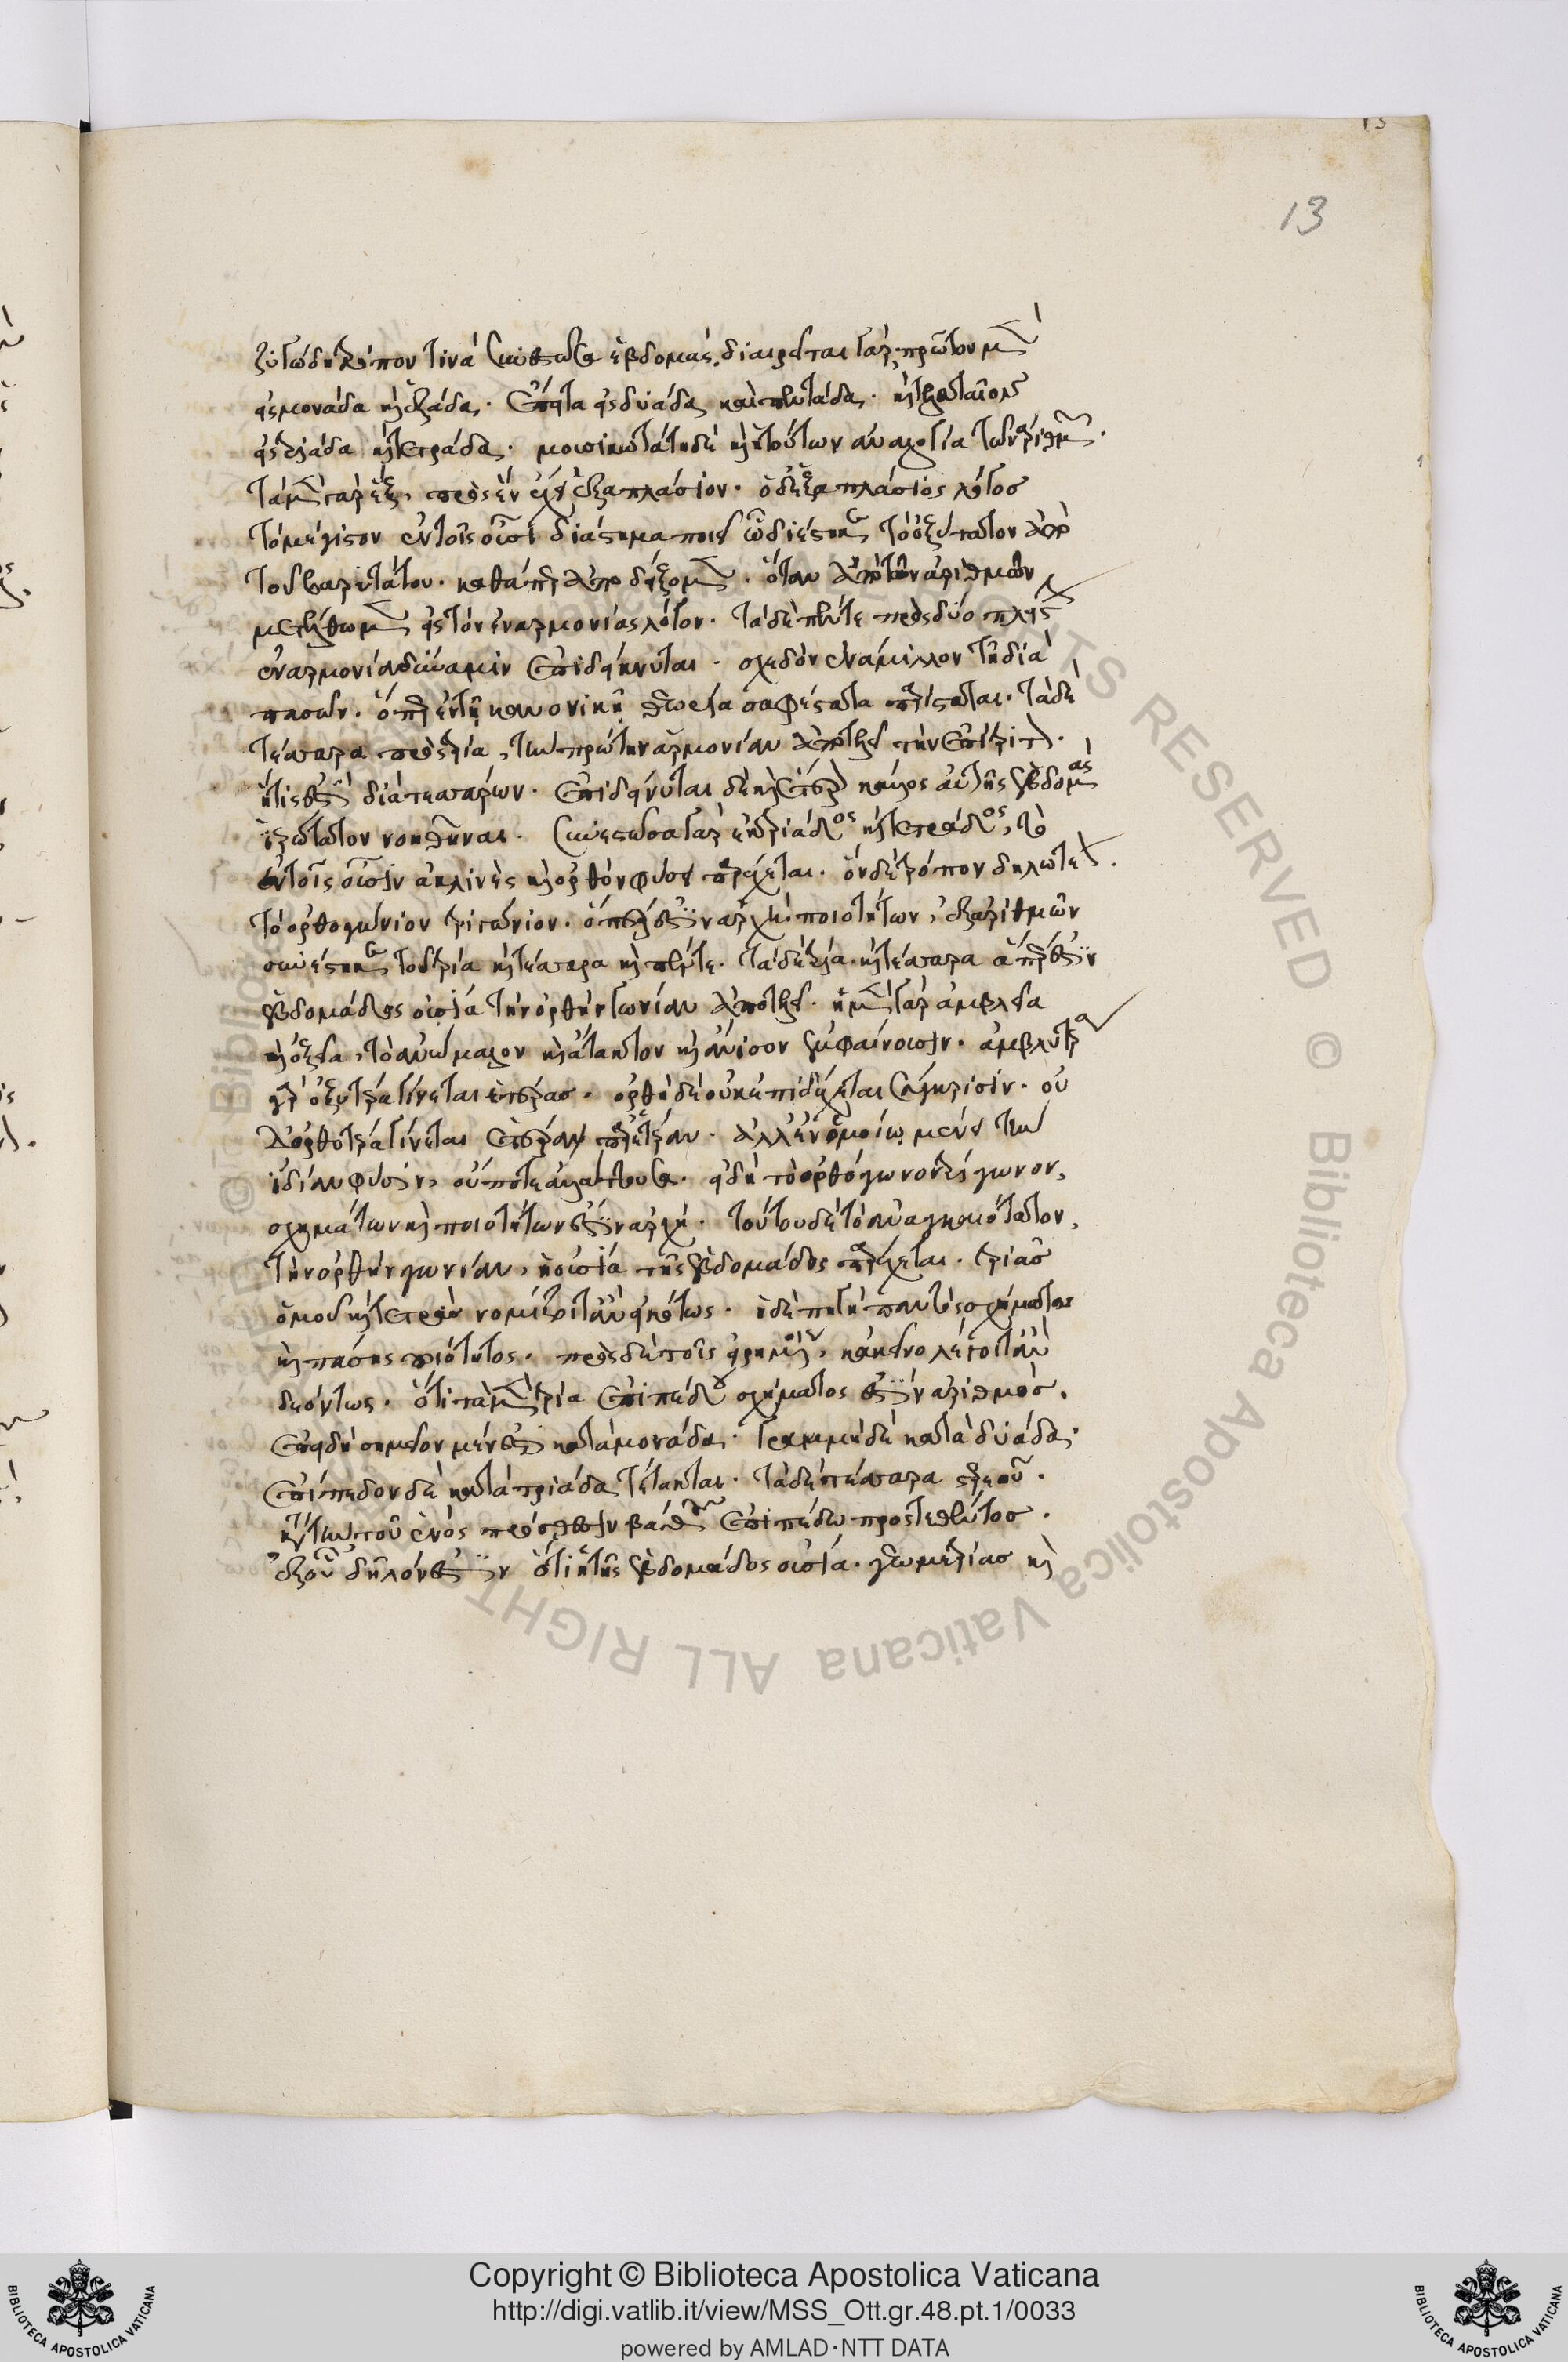 τρόπον τινὰ συνθεῖσα ἑβδομάς. διαιρεῖται γὰρ πρῶτον μὲν
εἰς μονάδα καὶ ἑξάδα. ἔπειτα εἰς δυάδα καὶ πεντάδα. καὶ τελευταῖον
εἰς τριάδα καὶ τετράδα. μουσικωτάτη δὲ καὶ ἡ τούτων ἀναλογία τῶν ἀριθμῶν.
τὰ μὲν γὰρ ἓξ, πρὸς ἓν ἔχει ἑξαπλάσιον. ὁ δὲ ἑξαπλάσιος λόγος
τὸ μέγιστον ἐν τοῖς οὖσι διάστημα ποιεῖ ᾧ διέστηκε τὸ ὀξύτατον ἀπὸ
τοῦ βαρυτάτου. καθάπερ ἀποδείξομεν. ὅταν ἀπὸ τῶν ἀριθμῶν
μετέλθωμεν εἰς τὸν ἐν ἁρμονίας λόγον. τὰ δὲ πέντε πρὸς δύο πλείστην
ἐν ἁρμονία δύναμιν ἐπιδείκνυται. σχεδὸν ἐνάμιλλον τῇ διὰ
πασῶν. ὅπερ ἐν τῇ κανονικῇ θεωρία σαφέστατα παρίσταται. τὰ δὲ
τέσσαρα πρὸς τρία, τὴν πρώτην ἁρμονίαν ἀποτελεῖ τὴν ἐπίτριτον.
ἥτις ἐστὶ διὰ τεσσάρων. ἐπιδείκνυται δὲ καὶ ἕτερον κάλλος αὐτῆς ἑβδομὰς
ἱερώτατον νοηθῆναι. συνεστῶσα γὰρ ἐκ τριάδος καὶ τετράδος, τὸ
ἐν τοῖς οὖσιν ἀκλινὲς καὶ ὀρθὸν φύσει παρέχεται. ὃν δὲ τρόπον δηλωτέον.
τὸ ὀρθογώνιον τρίγωνον. ὅπερ ἐστὶν ἀρχὴ ποιοτήτων, ἐξ ἀριθμῶν
συνέστηκε τοῦ τρία καὶ τέσσαρα καὶ πέντε. τὰ δὲ τρία καὶ τέσσαρα ἅπερ ἐστὶν
ἑβδομάδος οὐσία τὴν ὀρθὴν γωνίαν ἀποτελεῖ. ἡ μὲν γὰρ ἀμβλεῖα
καὶ ὀξεῖα, τὸ ἀνώμαλον καὶ ἄτακτον καὶ ἄνισον ἐμφαίνουσιν. ἀμβλυτέρα
γὰρ ὀξυτέρα γίνεται ἑτέρας. ὀρθὴ δὲ οὐκ ἐπιδέχεται σύγκρισιν. οὐ
δ' ὀρθοτέρα γίνεται ἑτέραν παρ' ἑτέραν. ἀλλ' ἐν ὁμοίῳ μένει τὴν
ἰδίαν φύσιν, οὔποτε ἀλάττουσα. εἰ δὴ τὸ ὀρθόγωνον τρίγωνον,
σχημάτων καὶ ποιοτήτων ἐστὶν ἀρχή. τούτου δὲ τὸ ἀναγκαιότατον,
τὴν ὀρθὴν γωνίαν, ἡ οὐσία τῆς ἑβδομάδος παρέχεται. τριὰς
ὁμοῦ καὶ τετρὰς νομίζοιτ' ἂν εἰκότως. ἥδε πηγὴ παντὸς σχήματος
καὶ πάσης ποιότητος. πρὸς δὲ τοῖς εἰρημένοις, κἀκεῖνο λέγοιτ' ἂν
δεόντως. ὅτι τὰ μὲν τρία ἐπιπέδου σχήματος ἐστὶν ἀριθμός.
ἐπειδὴ σημεῖον μέν ἐστι κατὰ μονάδα. γραμμὴ δὲ κατὰ δυάδα.
ἐπίπεδον δὲ κατὰ τριάδα τέτακται. τὰ δὲ τέσσαρα στερεοῦ.
κατὰ τὴν τοῦ ἑνὸς πρόσθεσιν βάθους ἐπιπέδω προστεθέντος.
ἐξ οὗ δῆλόν ἐστιν ὅτι ἡ τῆς ἑβδομάδος οὐσία. γεωμετρίας καὶ
13
Copyright © Biblioteca Apostolica Vaticana
http://digi.vatlib.it/view/MSS_Ott.gr.48.pt.1/0033
powered by AMLAD·NTT DATA